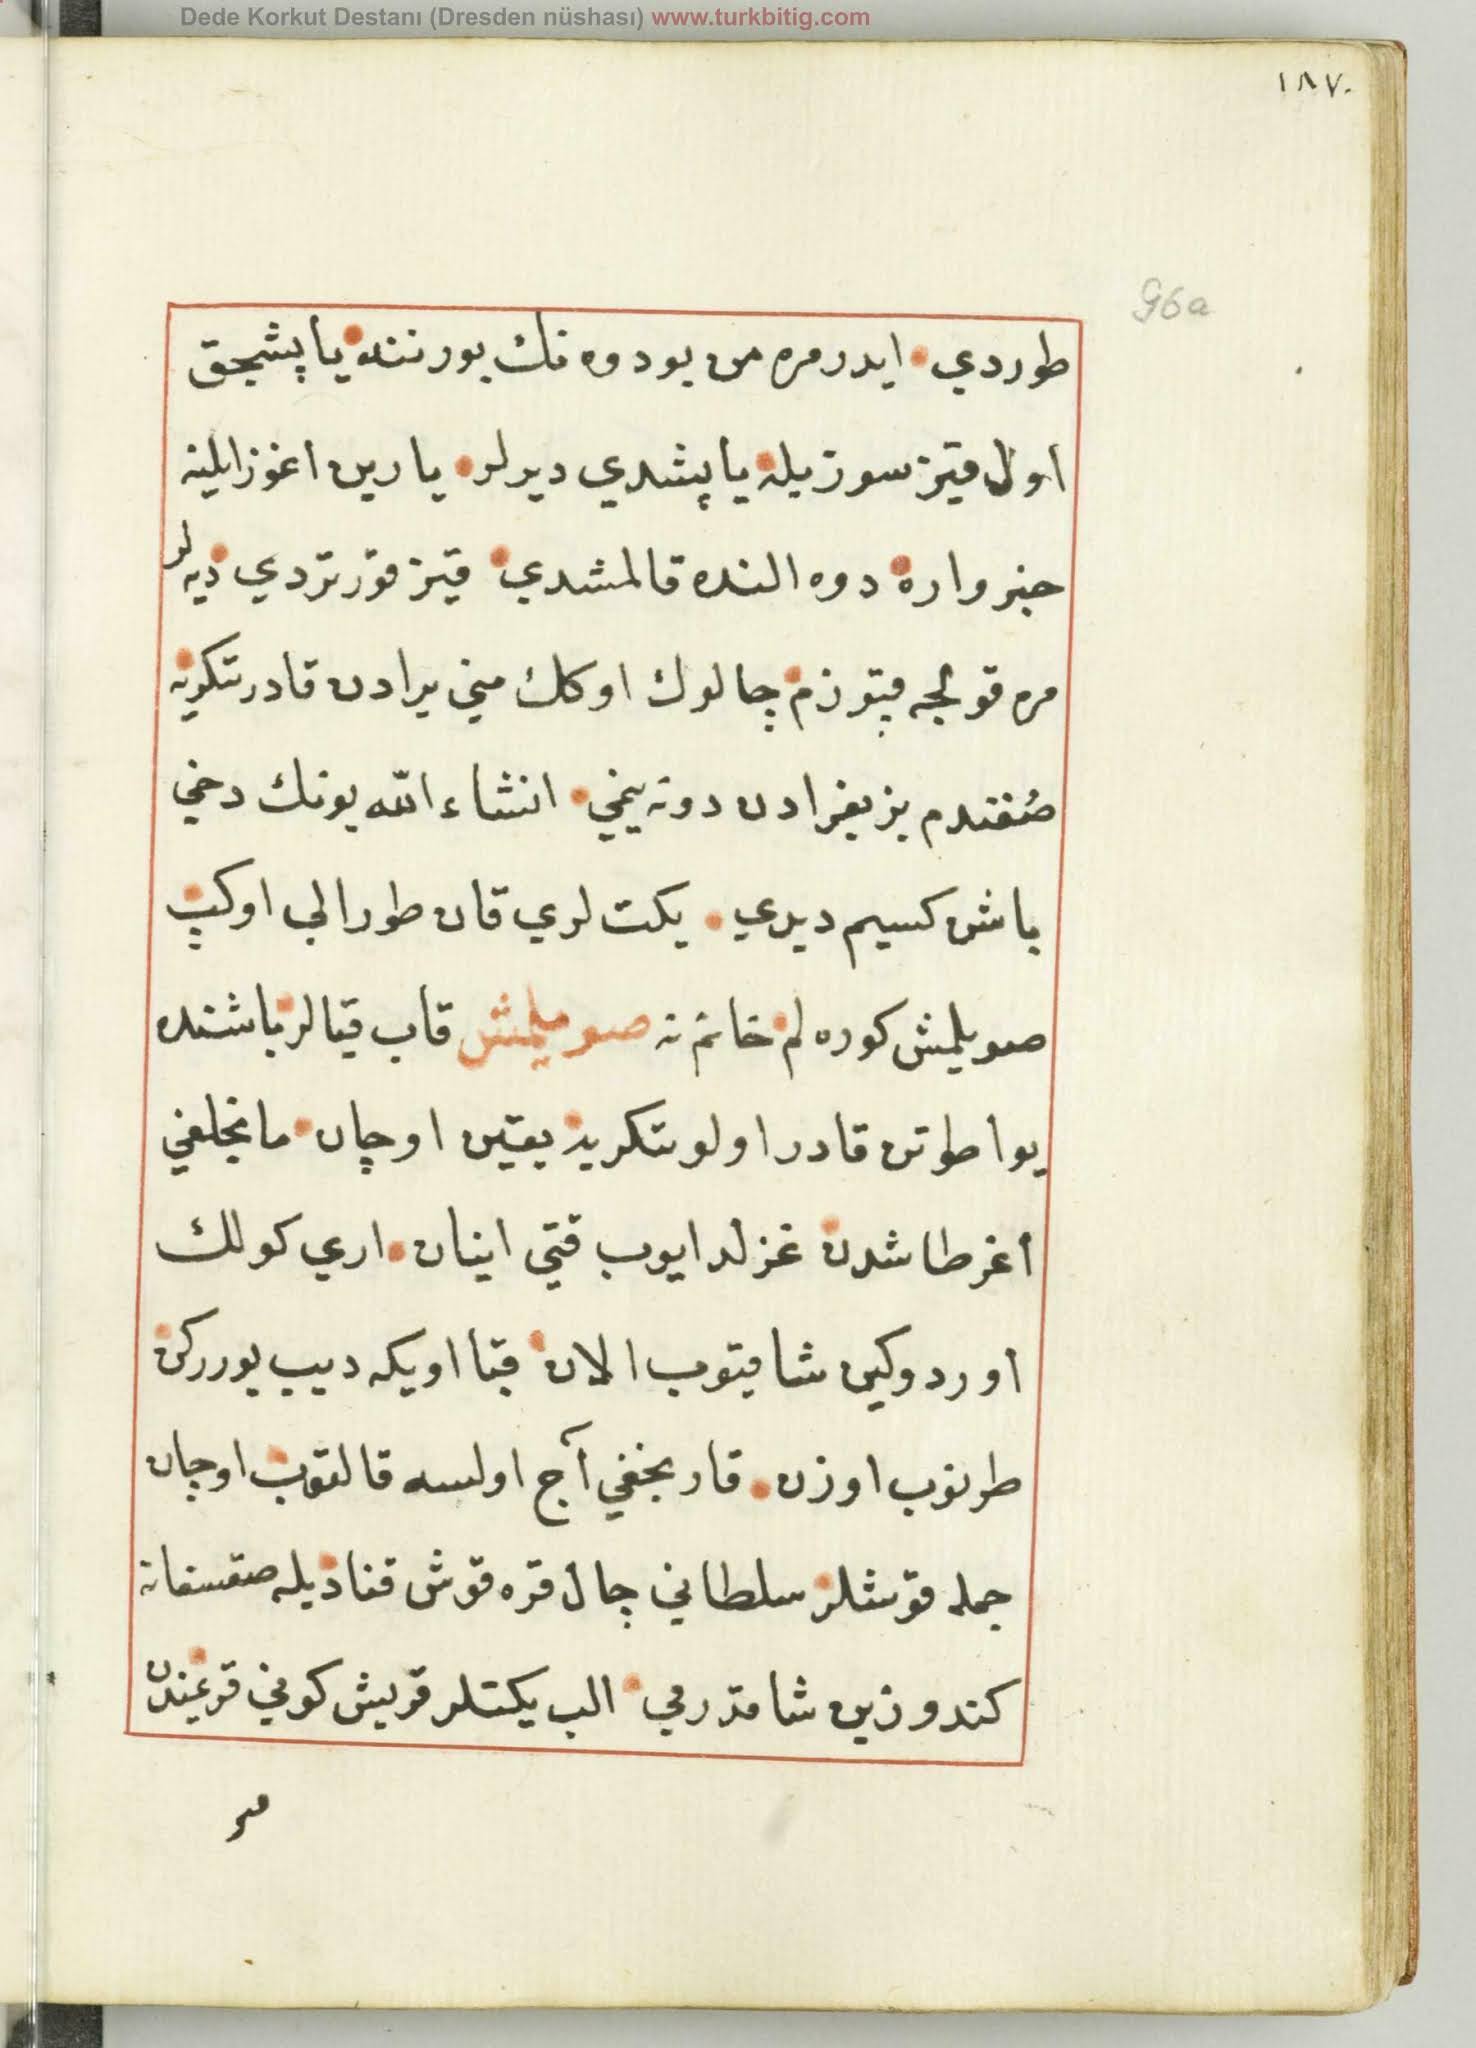 Dede Korkut Destanı (Dresden nüshası) www.turkbitig.com
١٨٧
96a
طوردي ايدر مره من بو دوه نك بورننه ياپشجق
اول قيز سوزيله ياپشدي ديرلر يارين اغوز ايلينه
خبر واره دوه النده قالمشدي قيز قورتردي ديه لر
مره قولجه قپوزم چالوك اوكك مني يرادن قادر تكريه
صغندم بز بغرادن دونه ييمي انشاء الله بونك دخي
باشن كسيم ديدي يكت لري قان طورالي اوكپ
صويلمش كوره لم خانم نه صويلمش قاب قيالر باشنده
يوا طوتن قادر اولو تكريه يقين اوچان مانجلغي
أغر طاشدن غزلدايوب قتي اينان اري كولك
اوردوكين شاقيوب الان قبا اويكه ديب يورركن
طرتوب اوزن قاربجغي آج اولسه قالقوب اوچان
جمله قوشلر سلطاني چال قره قوش قناديله صقسغانه
كندوزين شاقدرمي الب يكتلر قريش كوني قريمندن